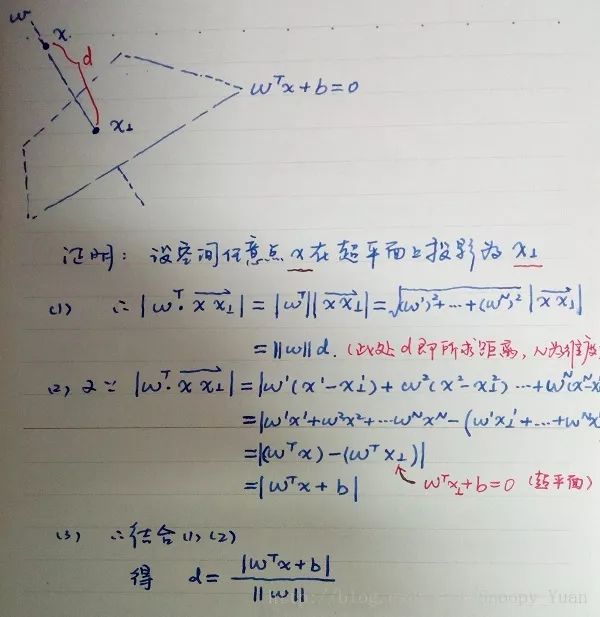 w x d
x⊥ wᵀx+b=0
证明: 设空间任意点 x 在超平面上投影为 x⊥
(1) ∴ |wᵀ·xx⊥| = |wᵀ||xx⊥| = √(w¹)²+⋯+(wᴺ)² |xx⊥|
= ||w||d. (此处 d 即所求距离, N为维度
(2) 又∵ |wᵀ·xx⊥| = |w¹(x¹-x⊥¹)+w²(x²-x⊥²)⋯+wᴺ(xᴺ-x
= |w¹x¹+w²x²+⋯wᴺxᴺ-(w¹x⊥¹+⋯+wᴺx
= |(wᵀx)-(wᵀx⊥)|
= |wᵀx+b| wᵀx⊥+b=0 (超平面)
(3) ∴结合(1),(2)
得 d= |wᵀx+b| / ||w||
http://blog.csdn.net/Snoopy_Yuan